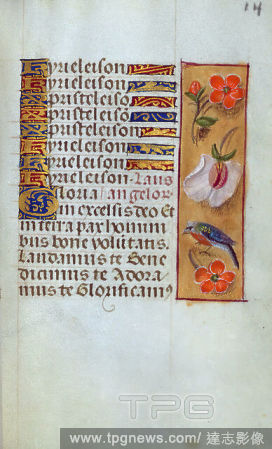 14
kyrieleison
kyrieleison
xpristeleisō
xpristeleisō
xpristeleison
kyrieleison
kyrieleison
kyrieleison. Laus
Gloria angelor
in excelsis deo Et
in terra pax homini
bus bone volūtatis.
Laudamus te Bene
dicimus te Adora
mus te Glorificam9
TPG
www.tpgnews.com/達志影像